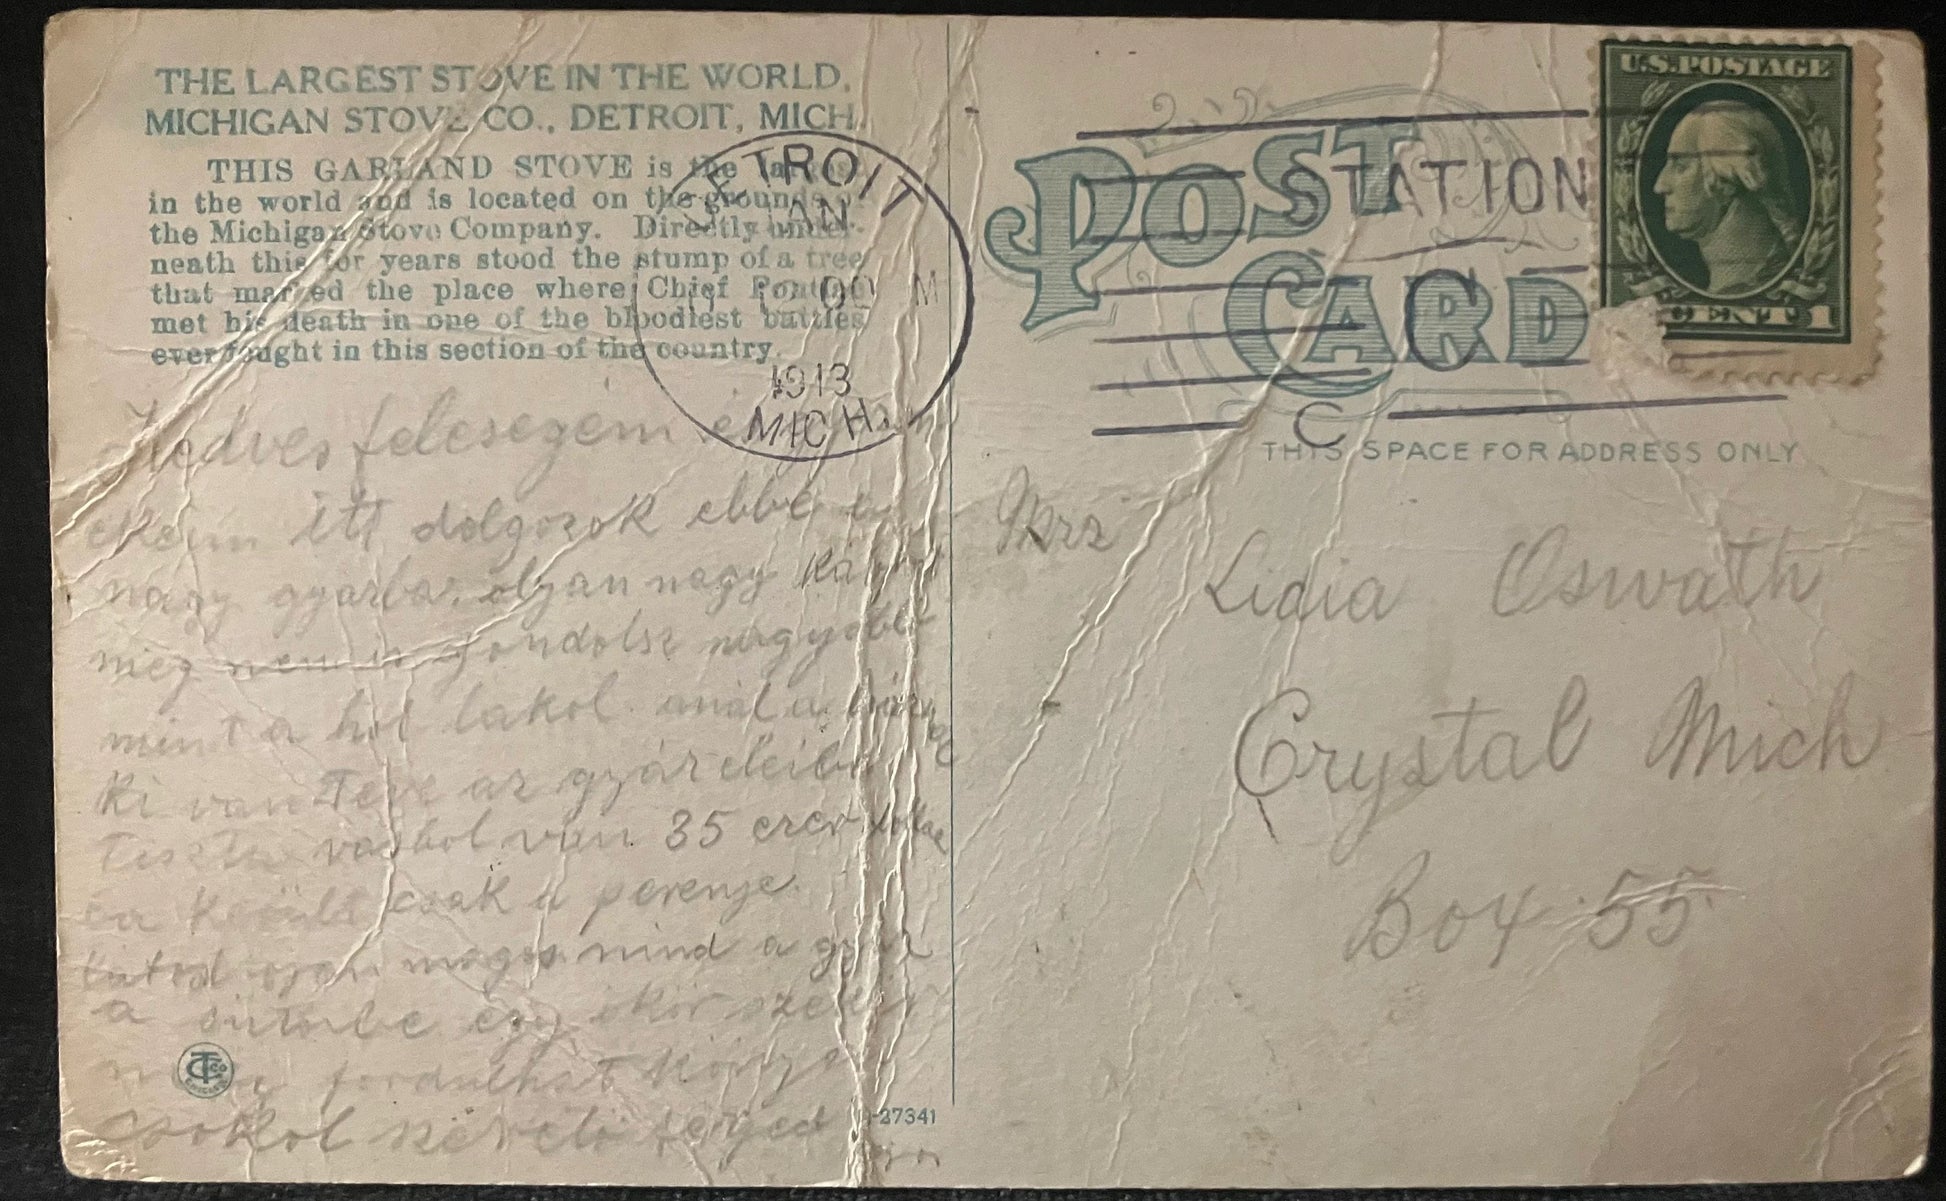 THE LARGEST STOVE IN THE WORLD,
MICHIGAN STOVE CO., DETROIT, MICH.
THIS GARLAND STOVE is the largest
in the world and is located on the grounds of
the Michigan Stove Company. Directly under-
neath this for years stood the stump of a tree
that marked the place where Chief Pontiac
met his death in one of the bloodiest battles
ever fought in this section of the country.
ETROIT
JAN
M
1913
MICH.
POST
CARD
STATION
C
U.S. POSTAGE
CENT 1
THIS SPACE FOR ADDRESS ONLY
Kedves felesegem
itt dolgozok ebbe
nagy gyarba. olyan nagy
meg nem is gondolsz nagyobb
mint a hol lakol
ki van Teve az gyár eleiba
Tiszta vasbol van 35 ezer
ba Került csak a perenje.
magas mind a gyár
a sutoube egy ökör szekér
fordulhat
csokol szerető ferjed
Mrz
Lidia Oswath
Crystal Mich
Box 55
TCCo
CHICAGO
27341